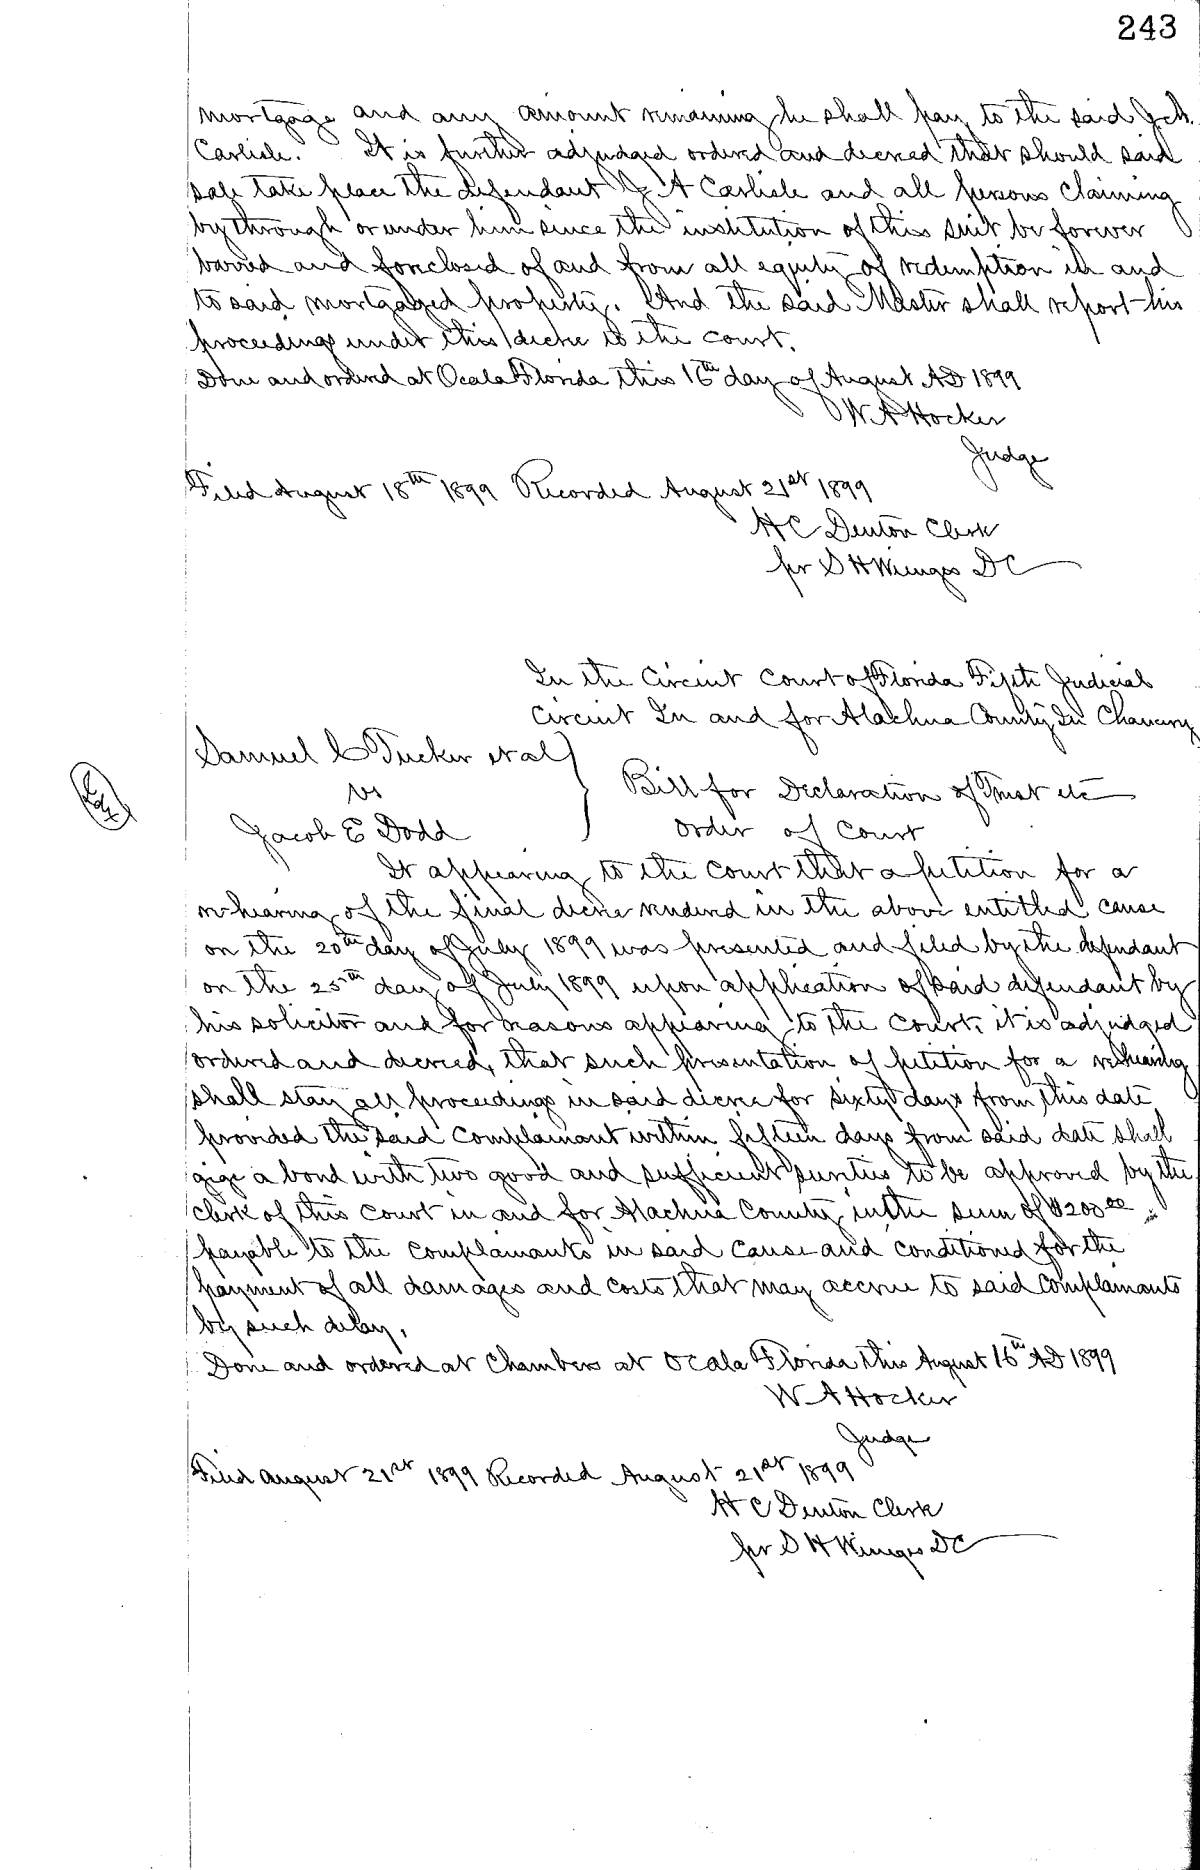 243
mortgage and any amount remaining he shall pay to the said J A
Carlisle. It is further adjudged ordered and decreed that should said
sale take place the defendant J A Carlisle and all persons claiming
by through or under him since the institution of this suit be forever
barred and foreclosed of and from all equity of redemption in and
to said mortgaged property. And the said Master shall report his
proceedings under this decree to the court.
Done and ordered at Ocala Florida this 16th day of August AD 1899
W A Hocker
Judge
Filed August 18th 1899 Recorded August 21st 1899
H C Denton Clerk
pr S H Wienges DC
In the Circuit Court of Florida Fifth Judicial
Circuit In and for Alachua County In Chancery
Samuel C Tucker et al
vs
Bill for Declaration of Trust etc
Jacob E Dodd
order of Court
It appearing to the Court that a petition for a
rehearing of the final decree rendered in the above entitled cause
on the 20th day of July 1899 was presented and filed by the defendant
on the 25th day of July 1899 upon application of said defendant by
his solicitor and for reasons appearing to the Court, it is adjudged
ordered and decreed, that such presentation of petition for a rehearing
shall stay all proceedings in said decree for sixty days from this date
provided the said Complainant within fifteen days from said date shall
give a bond with two good and sufficient sureties to be approved by the
clerk of this Court in and for Alachua County in the sum of $200.00
payable to the complainants in said cause and conditioned for the
payment of all damages and costs that may accrue to said Complainants
by such delay.
Done and ordered at Chambers at Ocala Florida this August 16th AD 1899
W A Hocker
Judge
Filed August 21st 1899 Recorded August 21st 1899
H C Denton Clerk
pr S H Wienges DC